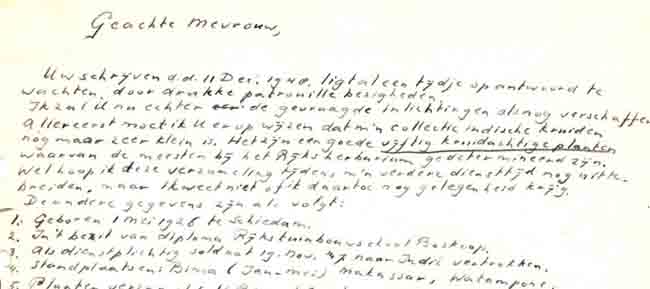 Geachte Mevrouw,
Uw schrijven d.d. 11 Dec. 1948. ligt al een tijdje op antwoord te
wachten, door drukke patrouille bezigheden.
Ik zal U nu echter de gevraagde inlichtingen alsnog verschaffen
Allereerst moet ik U er op wijzen dat m'n collectie indische kruiden
nog maar zeer klein is. Het zijn een goede vijftig kruidachtige planten
waarvan de meesten bij het Rijksherbarium gedetermineerd zijn.
Wel hoop ik deze verzameling tijdens m'n verdere diensttijd nog uit te
breiden, maar ik weet niet of ik daartoe nog gelegenheid krijg.
De andere gegevens zijn als volgt:
1. Geboren 1 Mei 1926 te Schiedam.
2. In 't bezit van diploma Rijkstuinbouwschool Boskoop.
3. Als dienstplichtig soldaat 19. Nov. 47 naar Indië vertrokken.
4. Standplaatsen: Bima (Jan-mei) Makassar, Watampone.
5. Planten